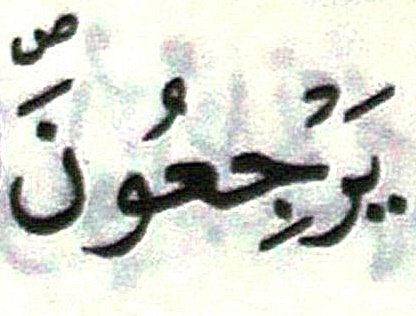 يَرْجِعُونَ ص